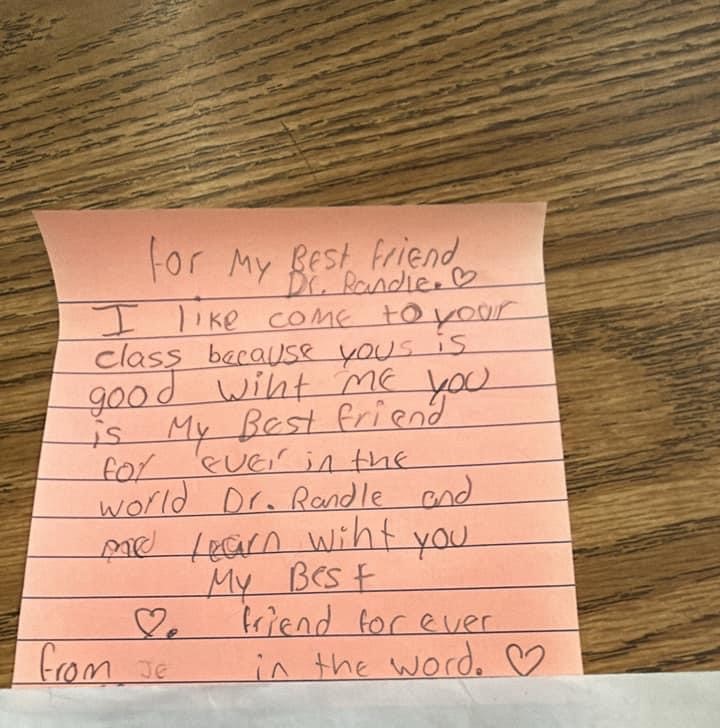 for My Best friend
Dr. Randle. ♡
I like come to your
class because yous is
good wiht me you
is My Best friend
for ever in the
world Dr. Randle and
me learn wiht you
My Best
♡. friend for ever
from Je in the word. ♡